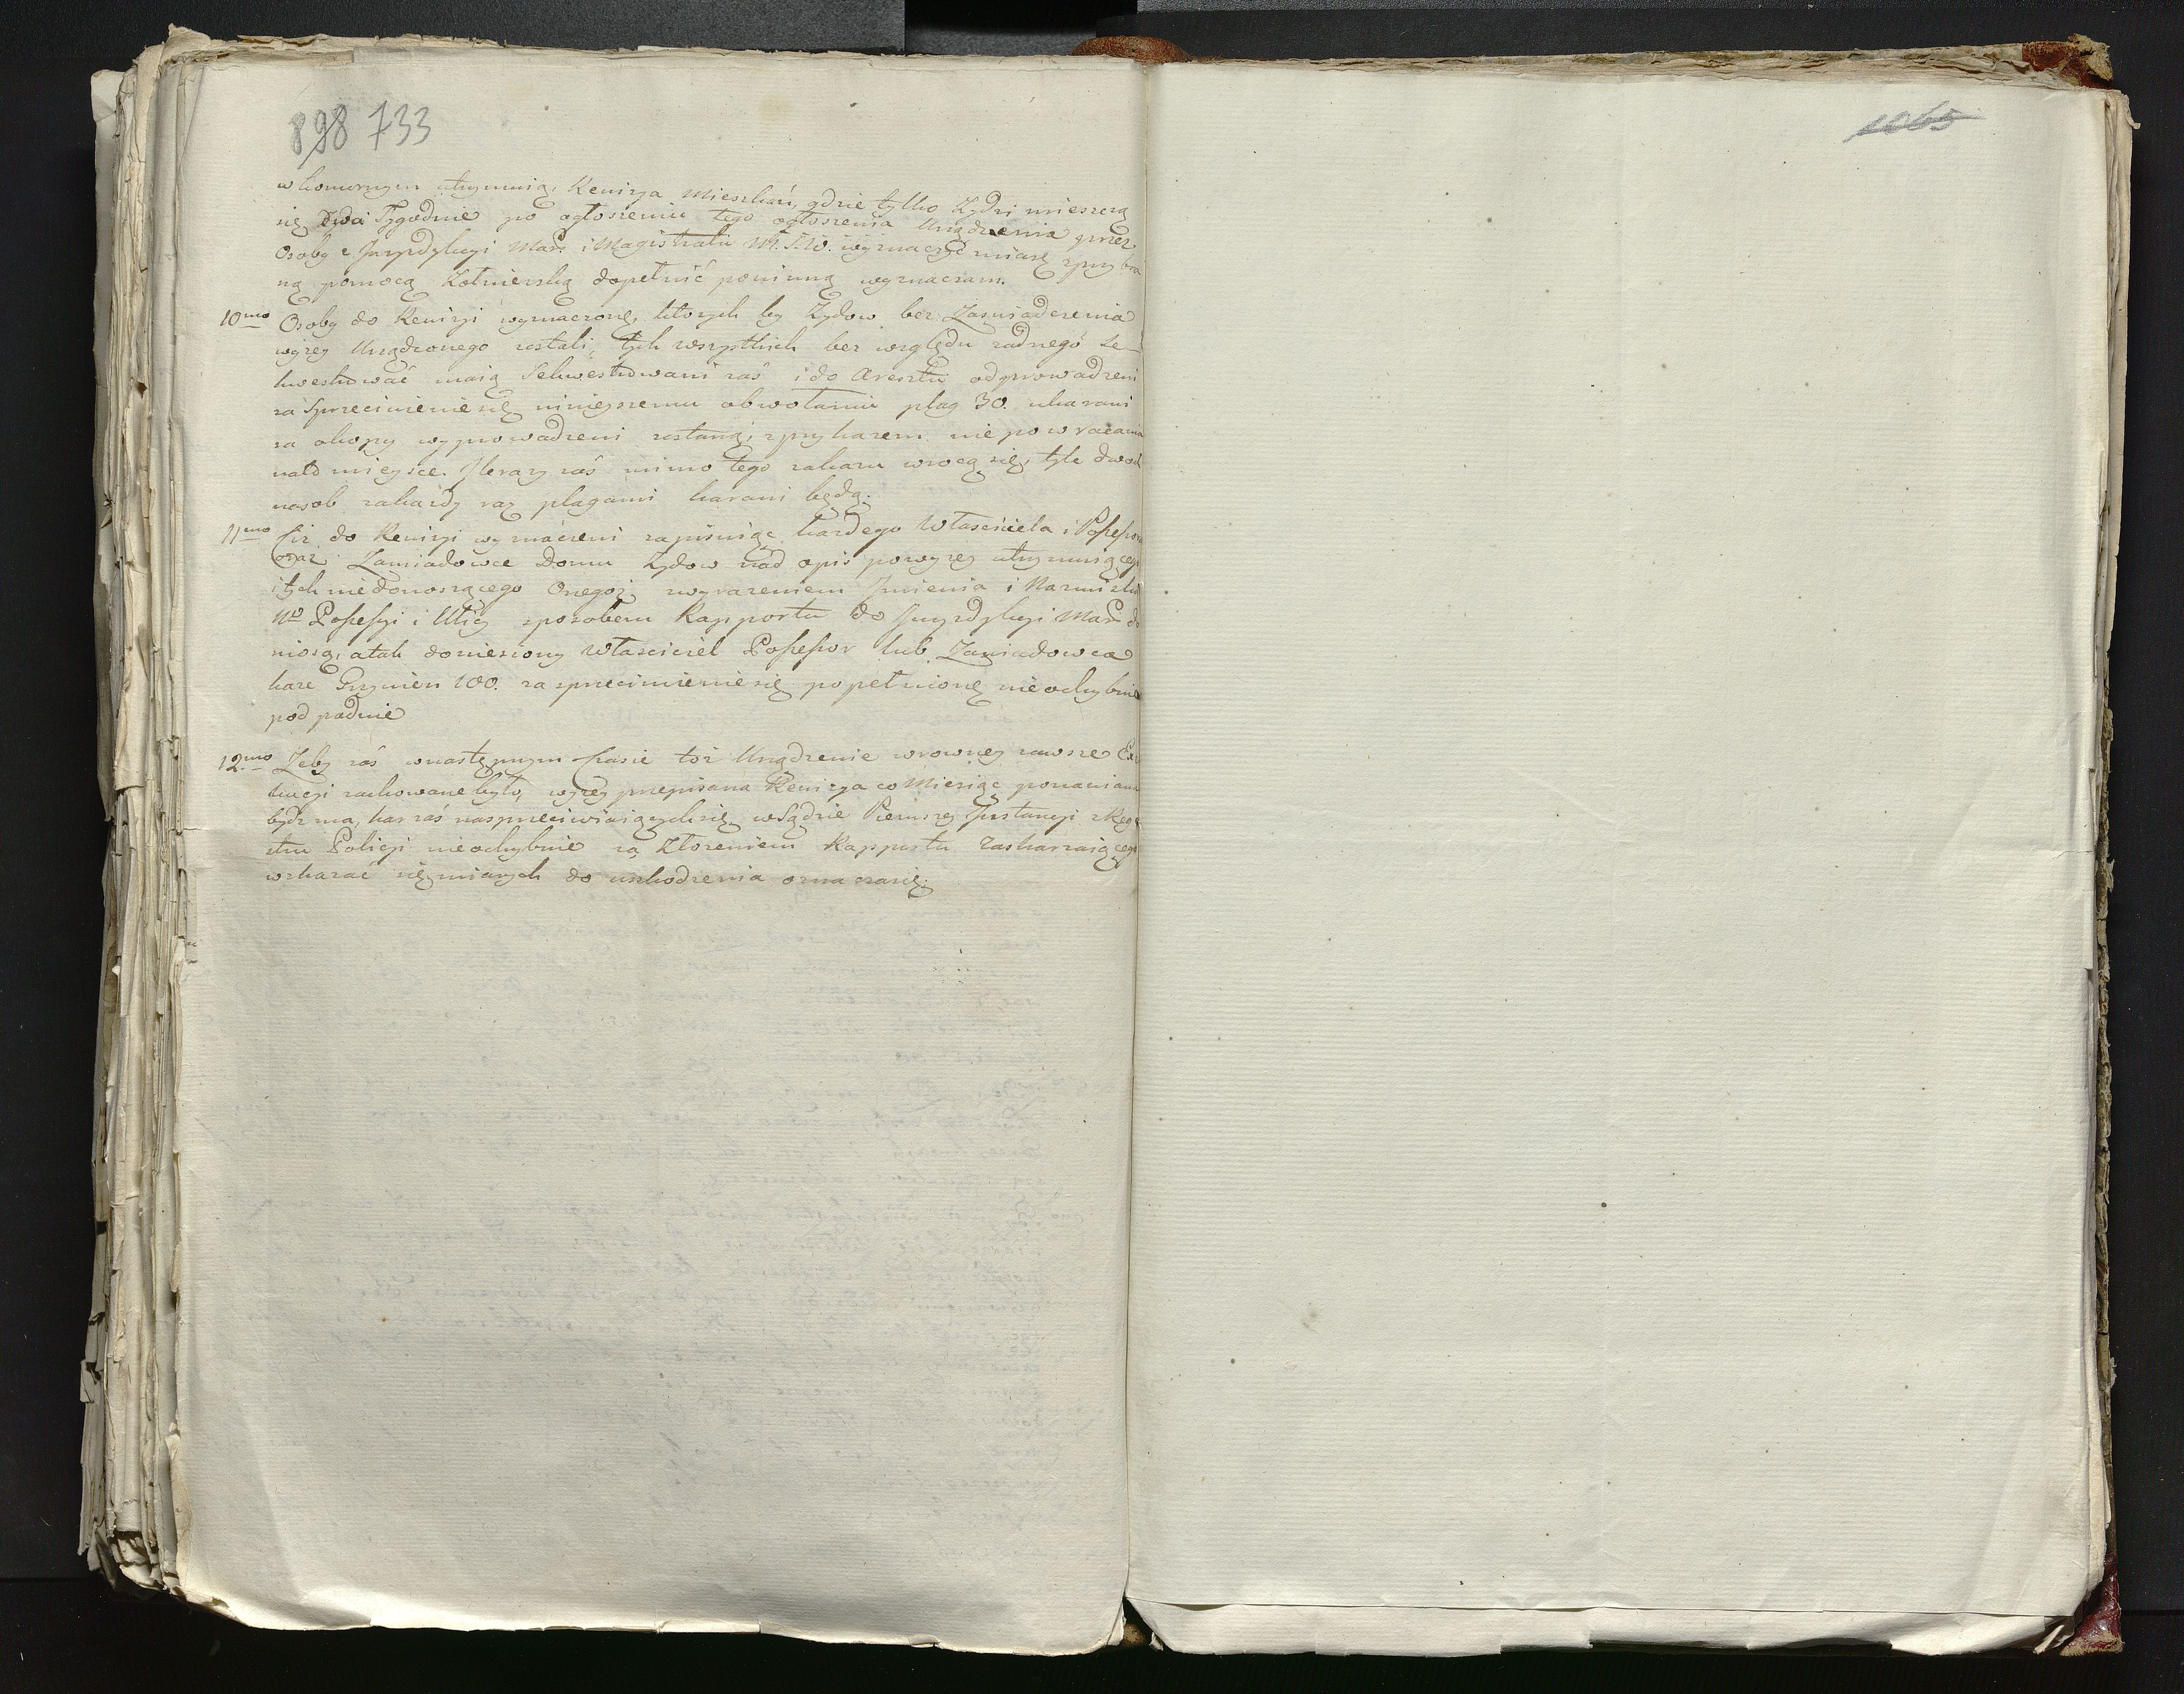 898 733
1065
w komornym utrzymuią, Rewizya Mieszkań, gdzie tylko Zydzi mieszczą
się Dwa Tygodnie po ogłoszeniu tego ogłoszenia Urządzenia przez
Osoby z Juryzdykcyi Mars: i Magistratu M. S. W. wyznaczyć miane z przybra
ną pomocą Zołnierską dopełnić powinną wyznaczam.
10mo Osoby do Rewizyi wyznaczone, ktorych by Zydow bez Zaswiadczenia
wyzey Urządzonego zostali, tych wszystkich bez względu zadnego Se-
kwestrować maią Sekwestrowani zaś i do Aresztu odprowadzeni
za Sprzeciwienie się ninieyszemu obwołaniu plag 30. ukarani
za okopy wyprowadzeni zostaną, z przykazem nie powracania
na to mieysce. Ilerazy zaś mimo tego zakazu wrocą się, tyle dwoch
nasob zakażdy raz plagami karani będą.
11mo Ciż do Rewizyi wyznaczeni zapisuiąc każdego Własciciela i Possessora
oraz Zawiadowce Domu Zydow nad opis powyzey utrzymuiącego
i tych niedonoszącego Onegoż, z wyrazeniem Imienia i Nazwiska
No Possessyi i Ulicy sposobem Rapportu do Juryzdykcyi Mars: do
niosą, a tak doniesiony Własciciel Possessor lub Zawiadowca
karze Grzywien 100. za sprzeciwienie się popełnione nieochybnie
podpadnie
12mo Zeby zaś w następnym Czasie toż Urządzenie w rowney zawsze Exe
kucyi zachowane było, wyzey przepisana Rewizya co Miesiąc ponawiana
bydz ma, kar zaś na sprzeciwiaiących się w Sądzie Pierwszey Instancyi z Rege
stru Policyi nieochybnie za Złozeniem Rapportu Zaskarzaiącego
wskazać się mianych do uskodzenia oznacza się.